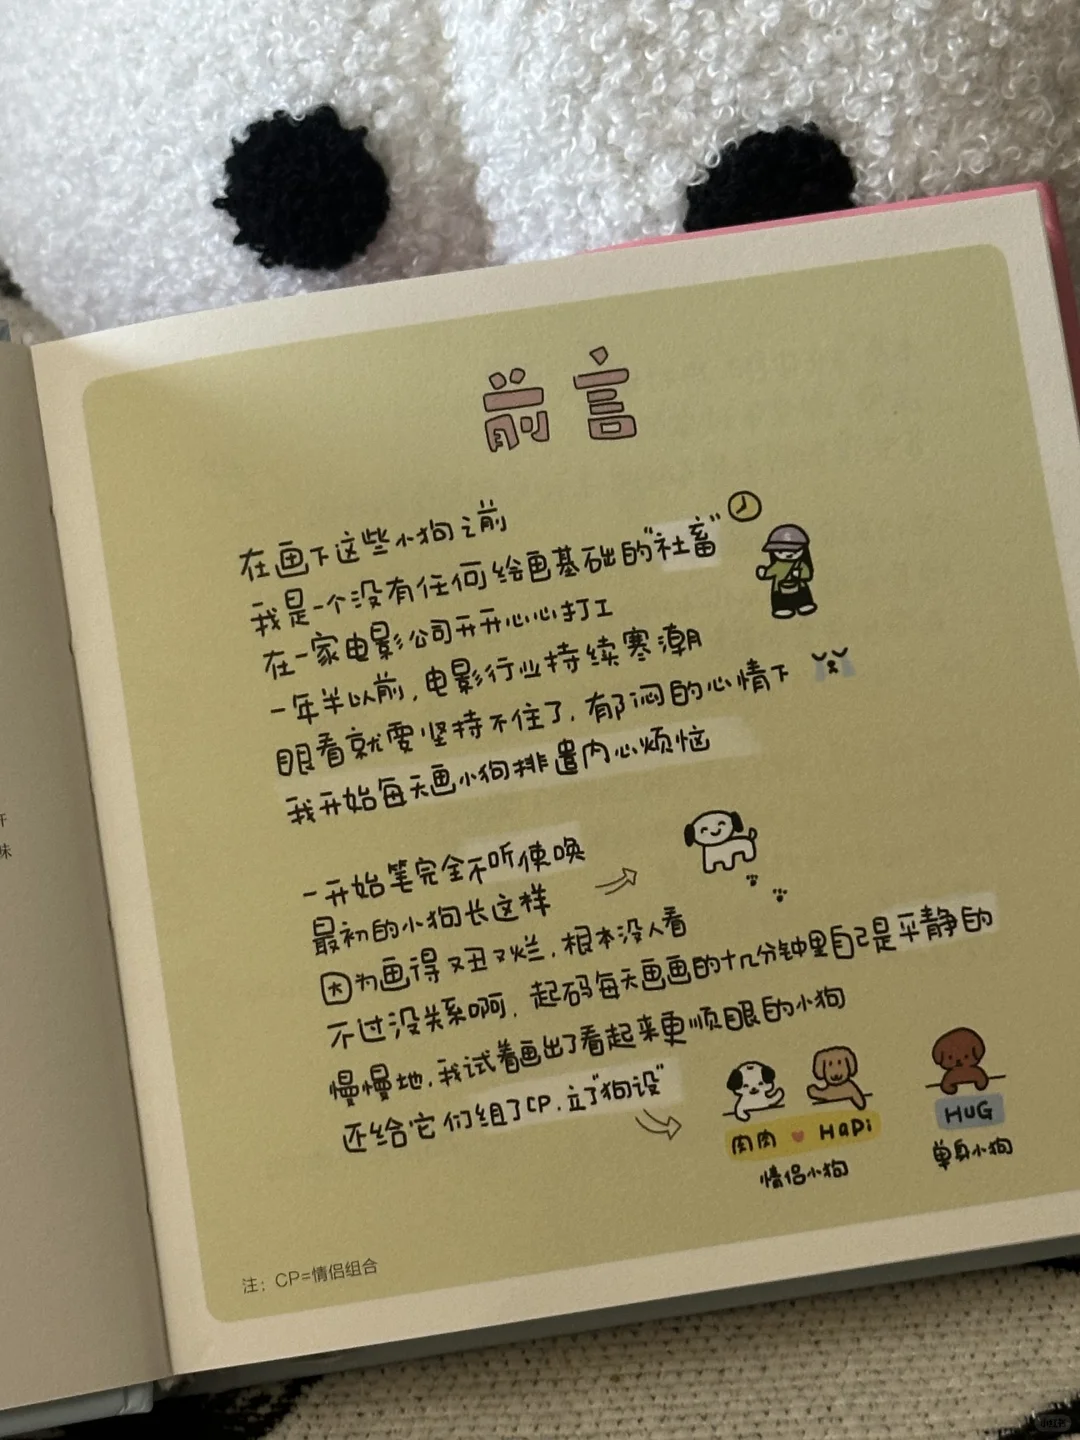 前言
在画下这些小狗之前
我是一个没有任何绘画基础的"社畜"
在一家电影公司开开心心打工
一年半以前，电影行业持续寒潮
眼看就要坚持不住了，郁闷的心情下
我开始每天画小狗排遣内心烦恼
一开始笔完全不听使唤
最初的小狗长这样
因为画得又丑又烂，根本没人看
不过没关系啊，起码每天画画的十几分钟里自己是平静的
慢慢地，我试着画出了看起来更顺眼的小狗
还给它们组了CP，立了"狗设"
肉肉 HaPi
情侣小狗
HUG
单身小狗
注：CP=情侣组合
味